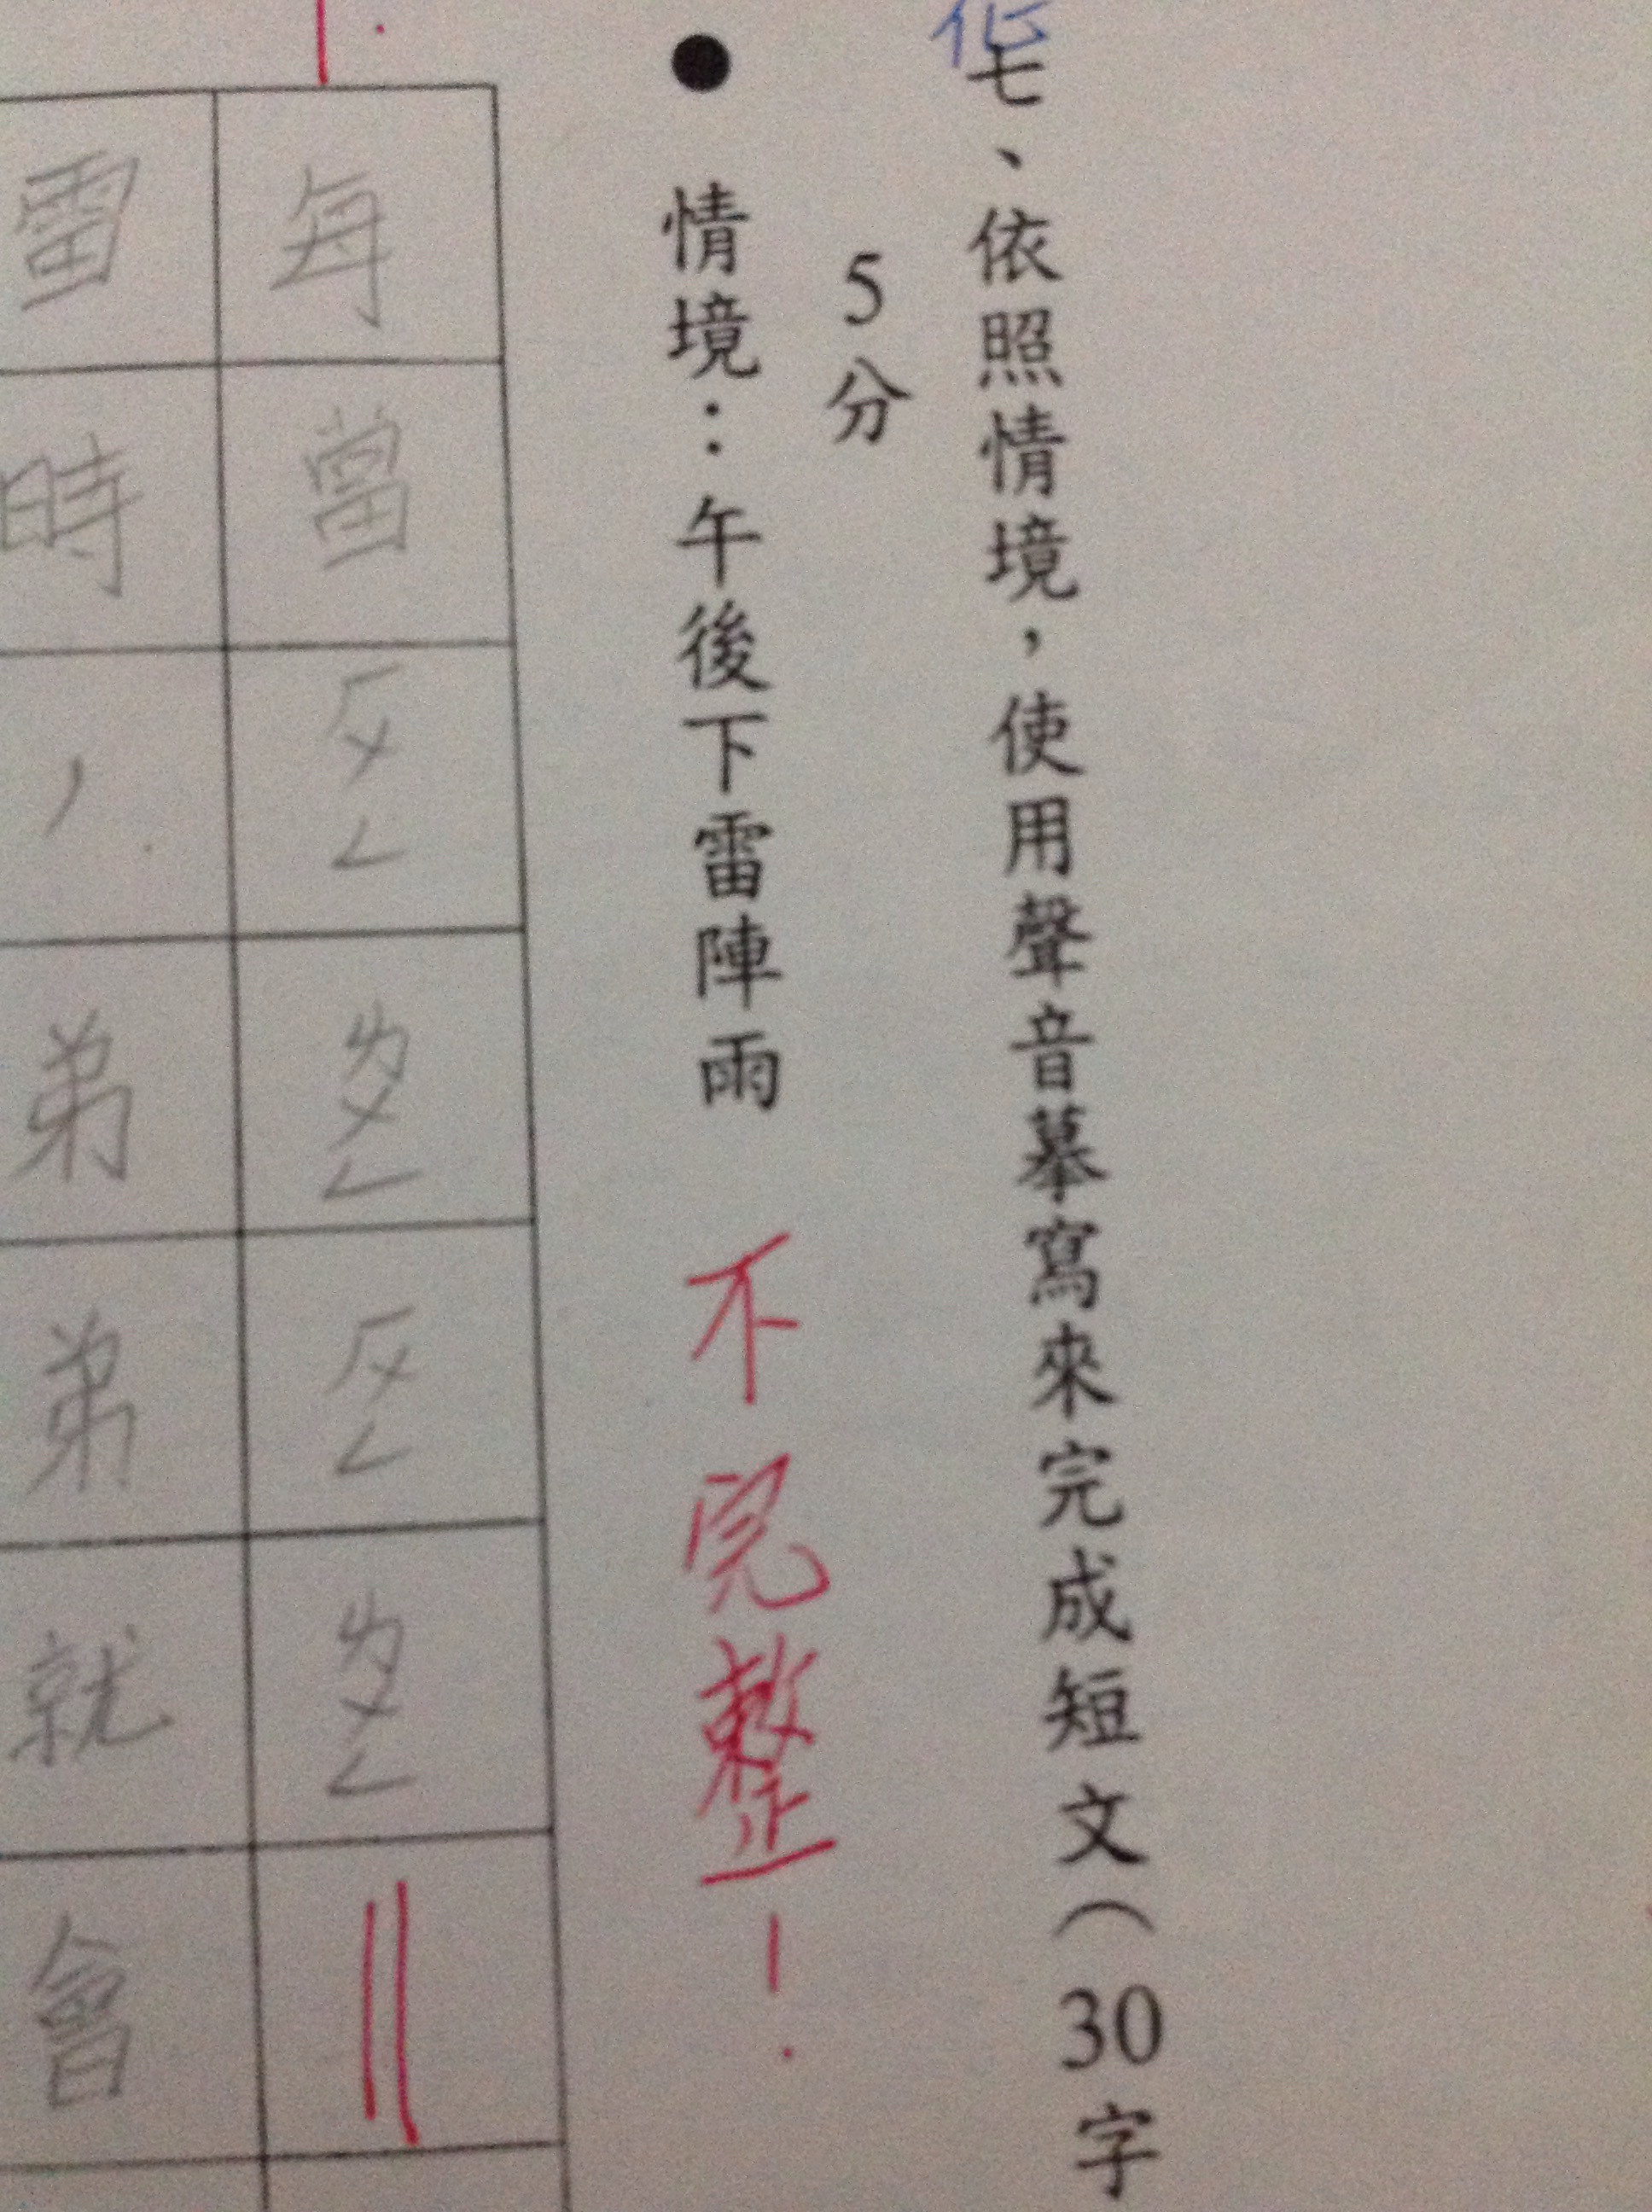 七、依照情境，使用聲音摹寫來完成短文（30字
5分
●情境：午後下雷陣雨 不完整！
每當ㄏㄨㄥㄌㄨㄥㄏㄨㄥㄌㄨㄥ
雷時，弟弟就會